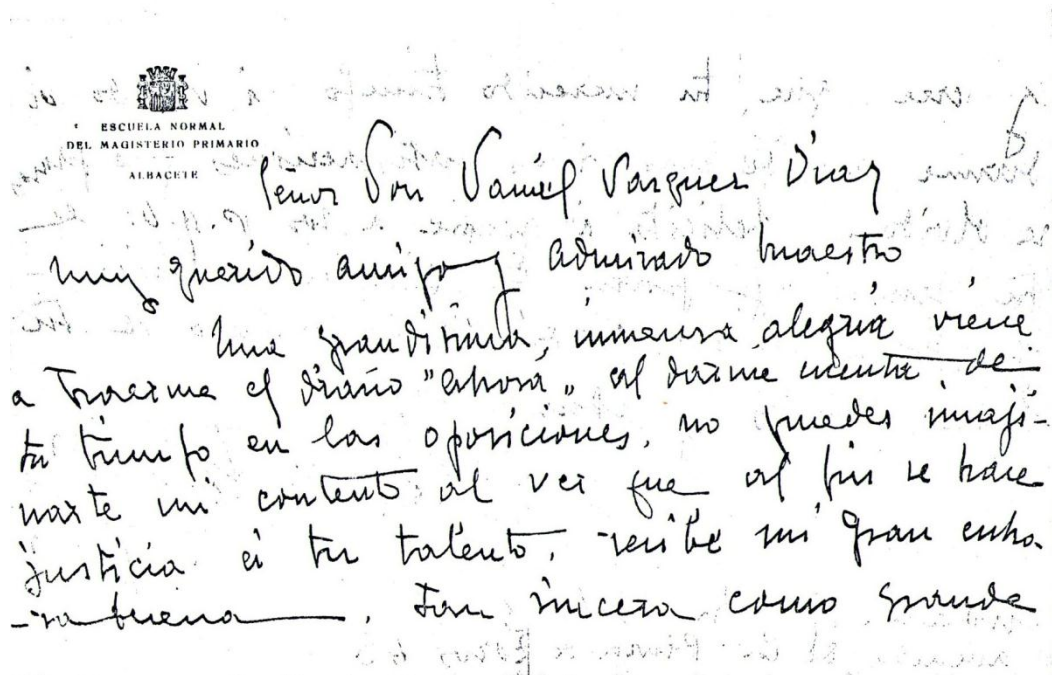 ESCUELA NORMAL
DEL MAGISTERIO PRIMARIO
ALBACETE
Señor Don Daniel Vazquez Diaz
muy querido amigo y admirado maestro
Una grandisima, inmensa alegria viene
a traerme el diario "Ahora" al darme cuenta de
tu triunfo en las oposiciones, no puedes imaji-
narte mi contento al ver que al fin se hace
justicia a tu talento, recibe mi gran enho
-rabuena, tan sincera como grande